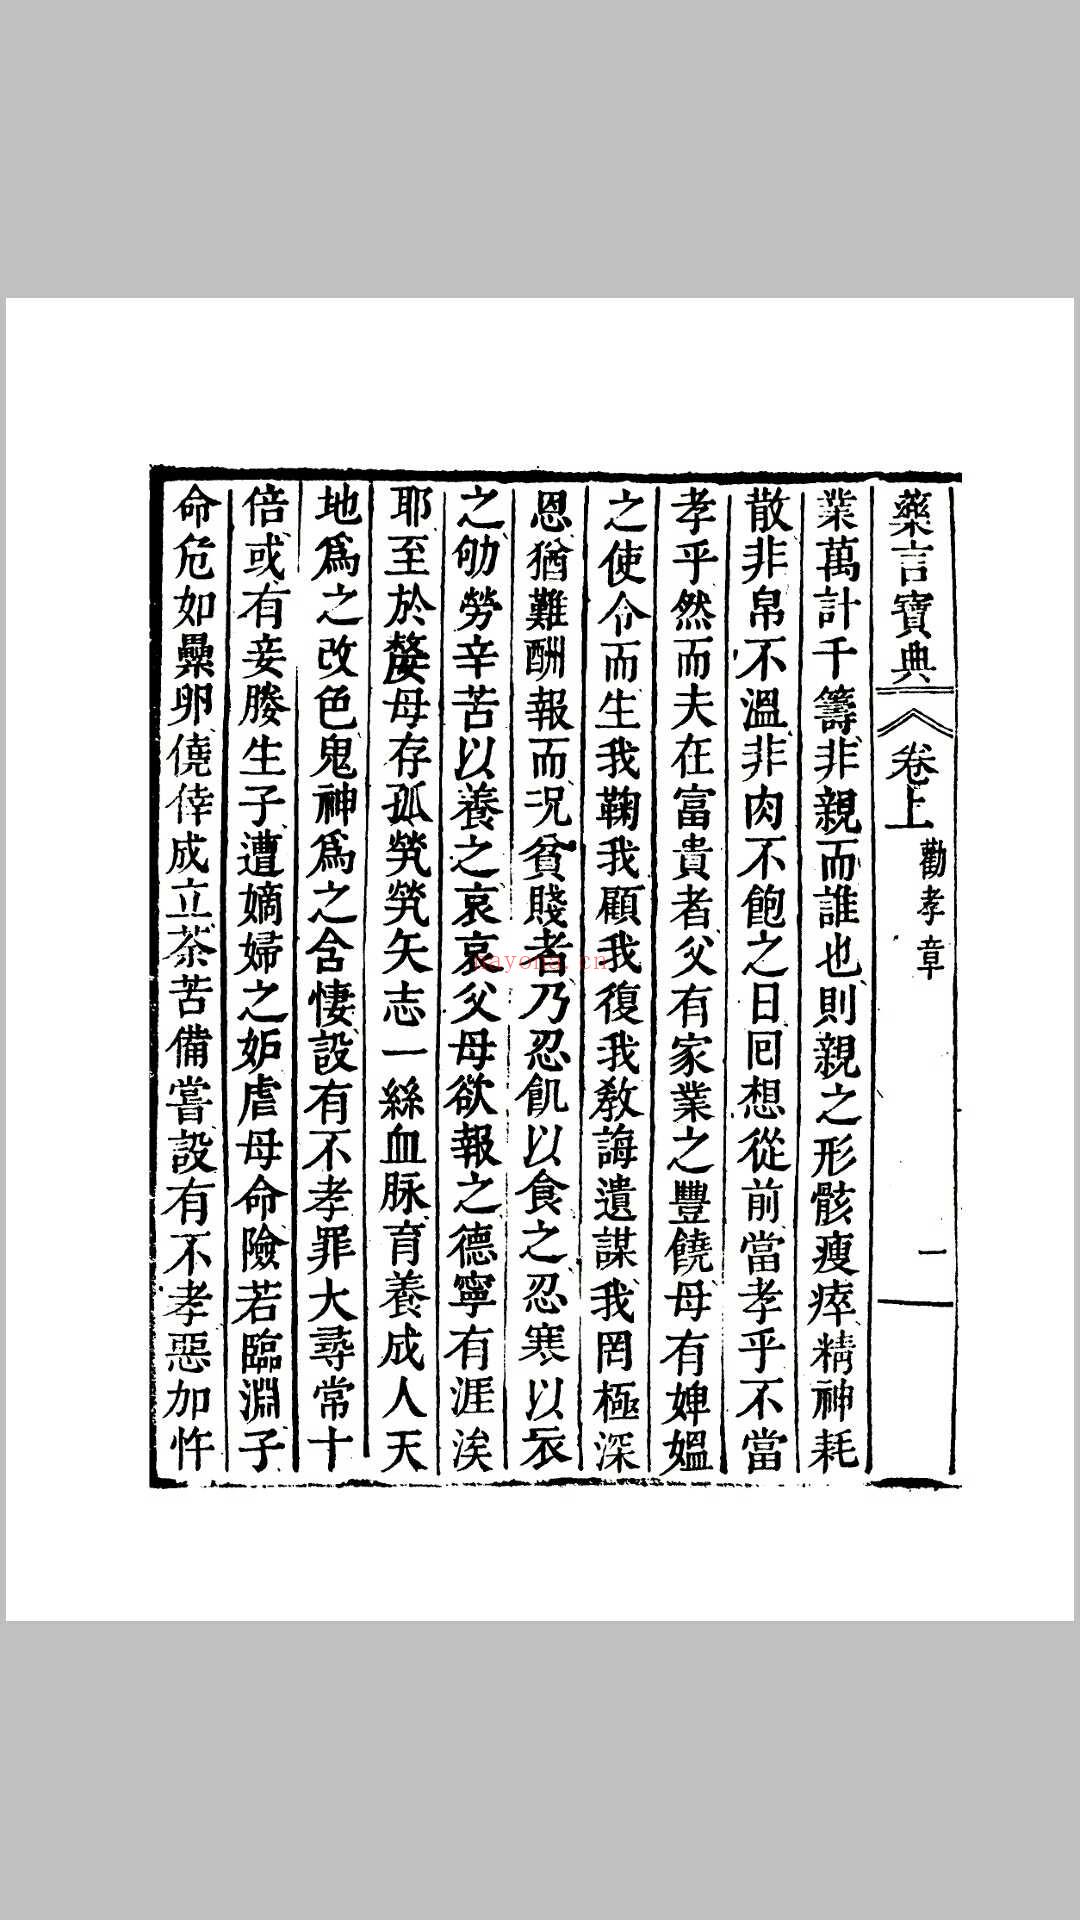 藥言寶典
卷上
勸孝章
一
業萬計千籌非親而誰也則親之形骸瘦瘁精神耗
散非帛不溫非肉不飽之日回想從前當孝乎不當
孝乎然而夫在富貴者父有家業之豐饒母有婢媼
之使令而生我鞠我顧我復我教誨遺謀我罔極深
恩猶難酬報而况貧賤者乃忍飢以食之忍寒以衣
之劬勞辛苦以養之哀哀父母欲報之德寧有涯涘
耶至於嫠母存孤煢煢矢志一絲血脉育養成人天
地為之改色鬼神為之含悽設有不孝罪大尋常十
倍或有妾媵生子遭嫡婦之妬虐母命險若臨淵子
命危如纍卵僥倖成立荼苦備嘗設有不孝惡加忤
nayona.cn